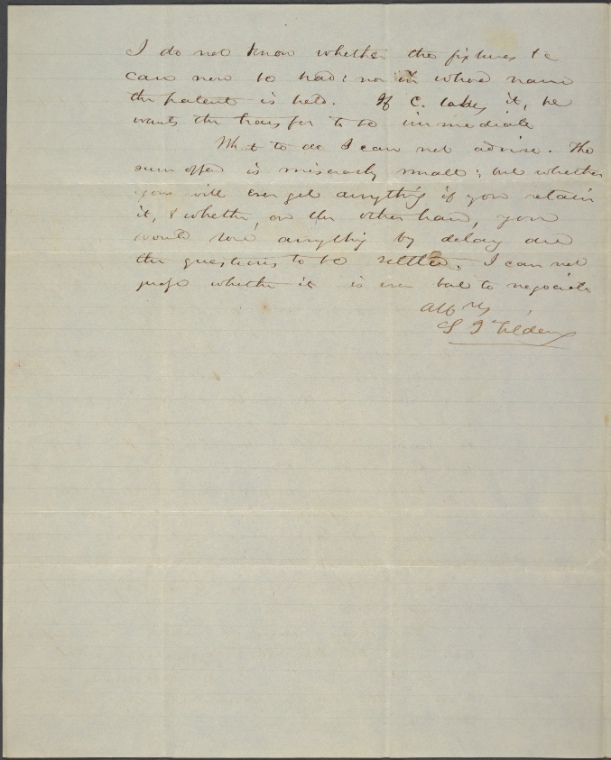 I do not know whether the fixtures &c
can now be had: nor in whose name
the patent is held. If C. takes it, he
wants the transfer to be immediate
What to do I can not advise. The
sum offered is miserably small; but whether
you will ever get anything if you retain
it, & whether, on the other hand, you
would lose anything by delay are
the questions to be settled. I can not
judge whether it is ever best to negociate
S J Tilden